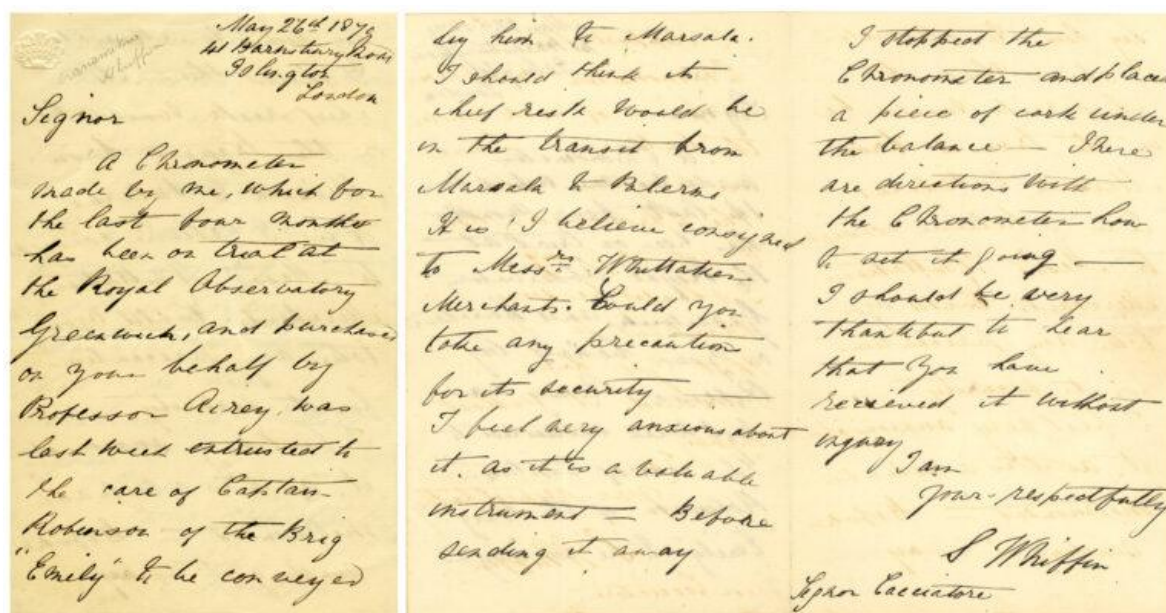 May 26th 187
41 Barnsbury Road
Islington
London
Whiffin
Signor
A Chronometer
made by me, which for
the last four months
has been on trial at
the Royal Observatory
Greenwich, and purchased
on your behalf by
Professor Airey, was
last week entrusted to
the care of Captain
Robinson of the Brig
"Emily" to be conveyed
by him to Marsala.
I should think its
chief risk would be
in the transit from
Marsala to Palermo
It is I believe consigned
to Messrs Whittaker
Merchants. Could you
take any precaution
for its security —
I feel very anxious about
it. as it is a valuable
instrument — Before
sending it away
I stopped the
Chronometer and place
a piece of cork under
the balance — There
are directions with
the Chronometer how
to set it going —
I should be very
thankful to hear
that you have
recieved it without
injury
I am
your respectfully
S Whiffin
Signor Cacciatore